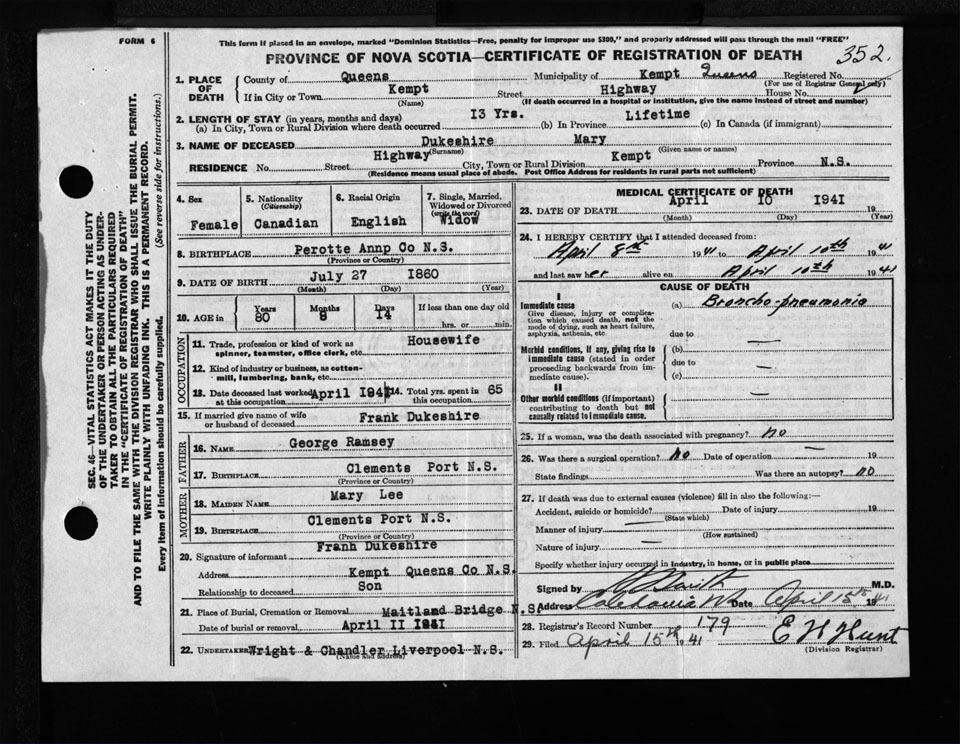 FORM 6
This form if placed in an envelope, marked "Dominion Statistics—Free, penalty for improper use $300," and properly addressed will pass through the mail "FREE"
PROVINCE OF NOVA SCOTIA—CERTIFICATE OF REGISTRATION OF DEATH
352.
SEC. 46—VITAL STATISTICS ACT MAKES IT THE DUTY
OF THE UNDERTAKER OR PERSON ACTING AS UNDER-
TAKER TO OBTAIN ALL THE PARTICULARS REQUIRED
IN THE "CERTIFICATE OF REGISTRATION OF DEATH"
AND TO FILE THE SAME WITH THE DIVISION REGISTRAR WHO SHALL ISSUE THE BURIAL PERMIT.
WRITE PLAINLY WITH UNFADING INK. THIS IS A PERMANENT RECORD.
Every item of information should be carefully supplied. (See reverse side for instructions.)
1. PLACE OF DEATH
County of Queens Municipality of Kempt Queens Registered No.
(For use of Registrar General only)
If in City or Town Kempt Street Highway House No.
(Name) (If death occurred in a hospital or institution, give the name instead of street and number)
2. LENGTH OF STAY (in years, months and days)
(a) In City, Town or Rural Division where death occurred 13 Yrs. (b) In Province Lifetime (c) In Canada (if immigrant)
3. NAME OF DECEASED Dukeshire Mary
(Surname) (Given name or names)
RESIDENCE No. Street Highway City, Town or Rural Division Kempt Province N.S.
(Residence means usual place of abode. Post Office Address for residents in rural parts not sufficient)
4. Sex
Female
5. Nationality
(Citizenship)
Canadian
6. Racial Origin
English
7. Single, Married,
Widowed or Divorced
(write the word)
Widow
8. BIRTHPLACE Perotte Annp Co N.S.
(Province or Country)
9. DATE OF BIRTH July 27 1860
(Month) (Day) (Year)
10. AGE in
Years 80
Months 8
Days 14
If less than one day old
hrs. or min.
OCCUPATION
11. Trade, profession or kind of work as
spinner, teamster, office clerk, etc Housewife
12. Kind of industry or business, as cotton-
mill, lumbering, bank, etc.
13. Date deceased last worked
at this occupation April 1941
14. Total yrs. spent in
this occupation 65
15. If married give name of wife
or husband of deceased Frank Dukeshire
FATHER
16. Name George Ramsey
17. Birthplace Clements Port N.S.
(Province or Country)
MOTHER
18. Maiden Name Mary Lee
19. Birthplace Clements Port N.S.
(Province or Country)
20. Signature of informant Franh Dukeshire
Address Kempt Queens Co N.S.
Relationship to deceased Son
21. Place of Burial, Cremation or Removal Maitland Bridge N.S.
Date of burial or removal April II 1941
22. Undertaker Wright & Chandler Liverpool N.S.
(Name and address)
MEDICAL CERTIFICATE OF DEATH
23. DATE OF DEATH April 10 1941 19
(Month) (Day) (Year)
24. I HEREBY CERTIFY that I attended deceased from:
April 8th 1941 to April 10th 1941
and last saw her alive on April 10th 1941
CAUSE OF DEATH
I
Immediate cause
Give disease, injury or complica-
tion which caused death, not the
mode of dying, such as heart failure,
asphyxia, asthenia, etc.
(a) Broncho-pneumonia
due to —
Morbid conditions, if any, giving rise to
immediate cause (stated in order
proceeding backwards from im-
mediate cause).
(b)
due to —
(c)
II
Other morbid conditions (if important)
contributing to death but not
causally related to immediate cause.
25. If a woman, was the death associated with pregnancy? no
26. Was there a surgical operation? no Date of operation — 19
State findings Was there an autopsy? no
27. If death was due to external causes (violence) fill in also the following:—
Accident, suicide or homicide? — Date of injury 19
(State which)
Manner of injury —
(How sustained)
Nature of injury —
Specify whether injury occurred in industry, in home, or in public place
Signed by M.D.
Address Caledonia NS Date April 15th 1941
28. Registrar's Record Number 179
29. Filed April 15th 1941 E H Hunt
(Division Registrar)